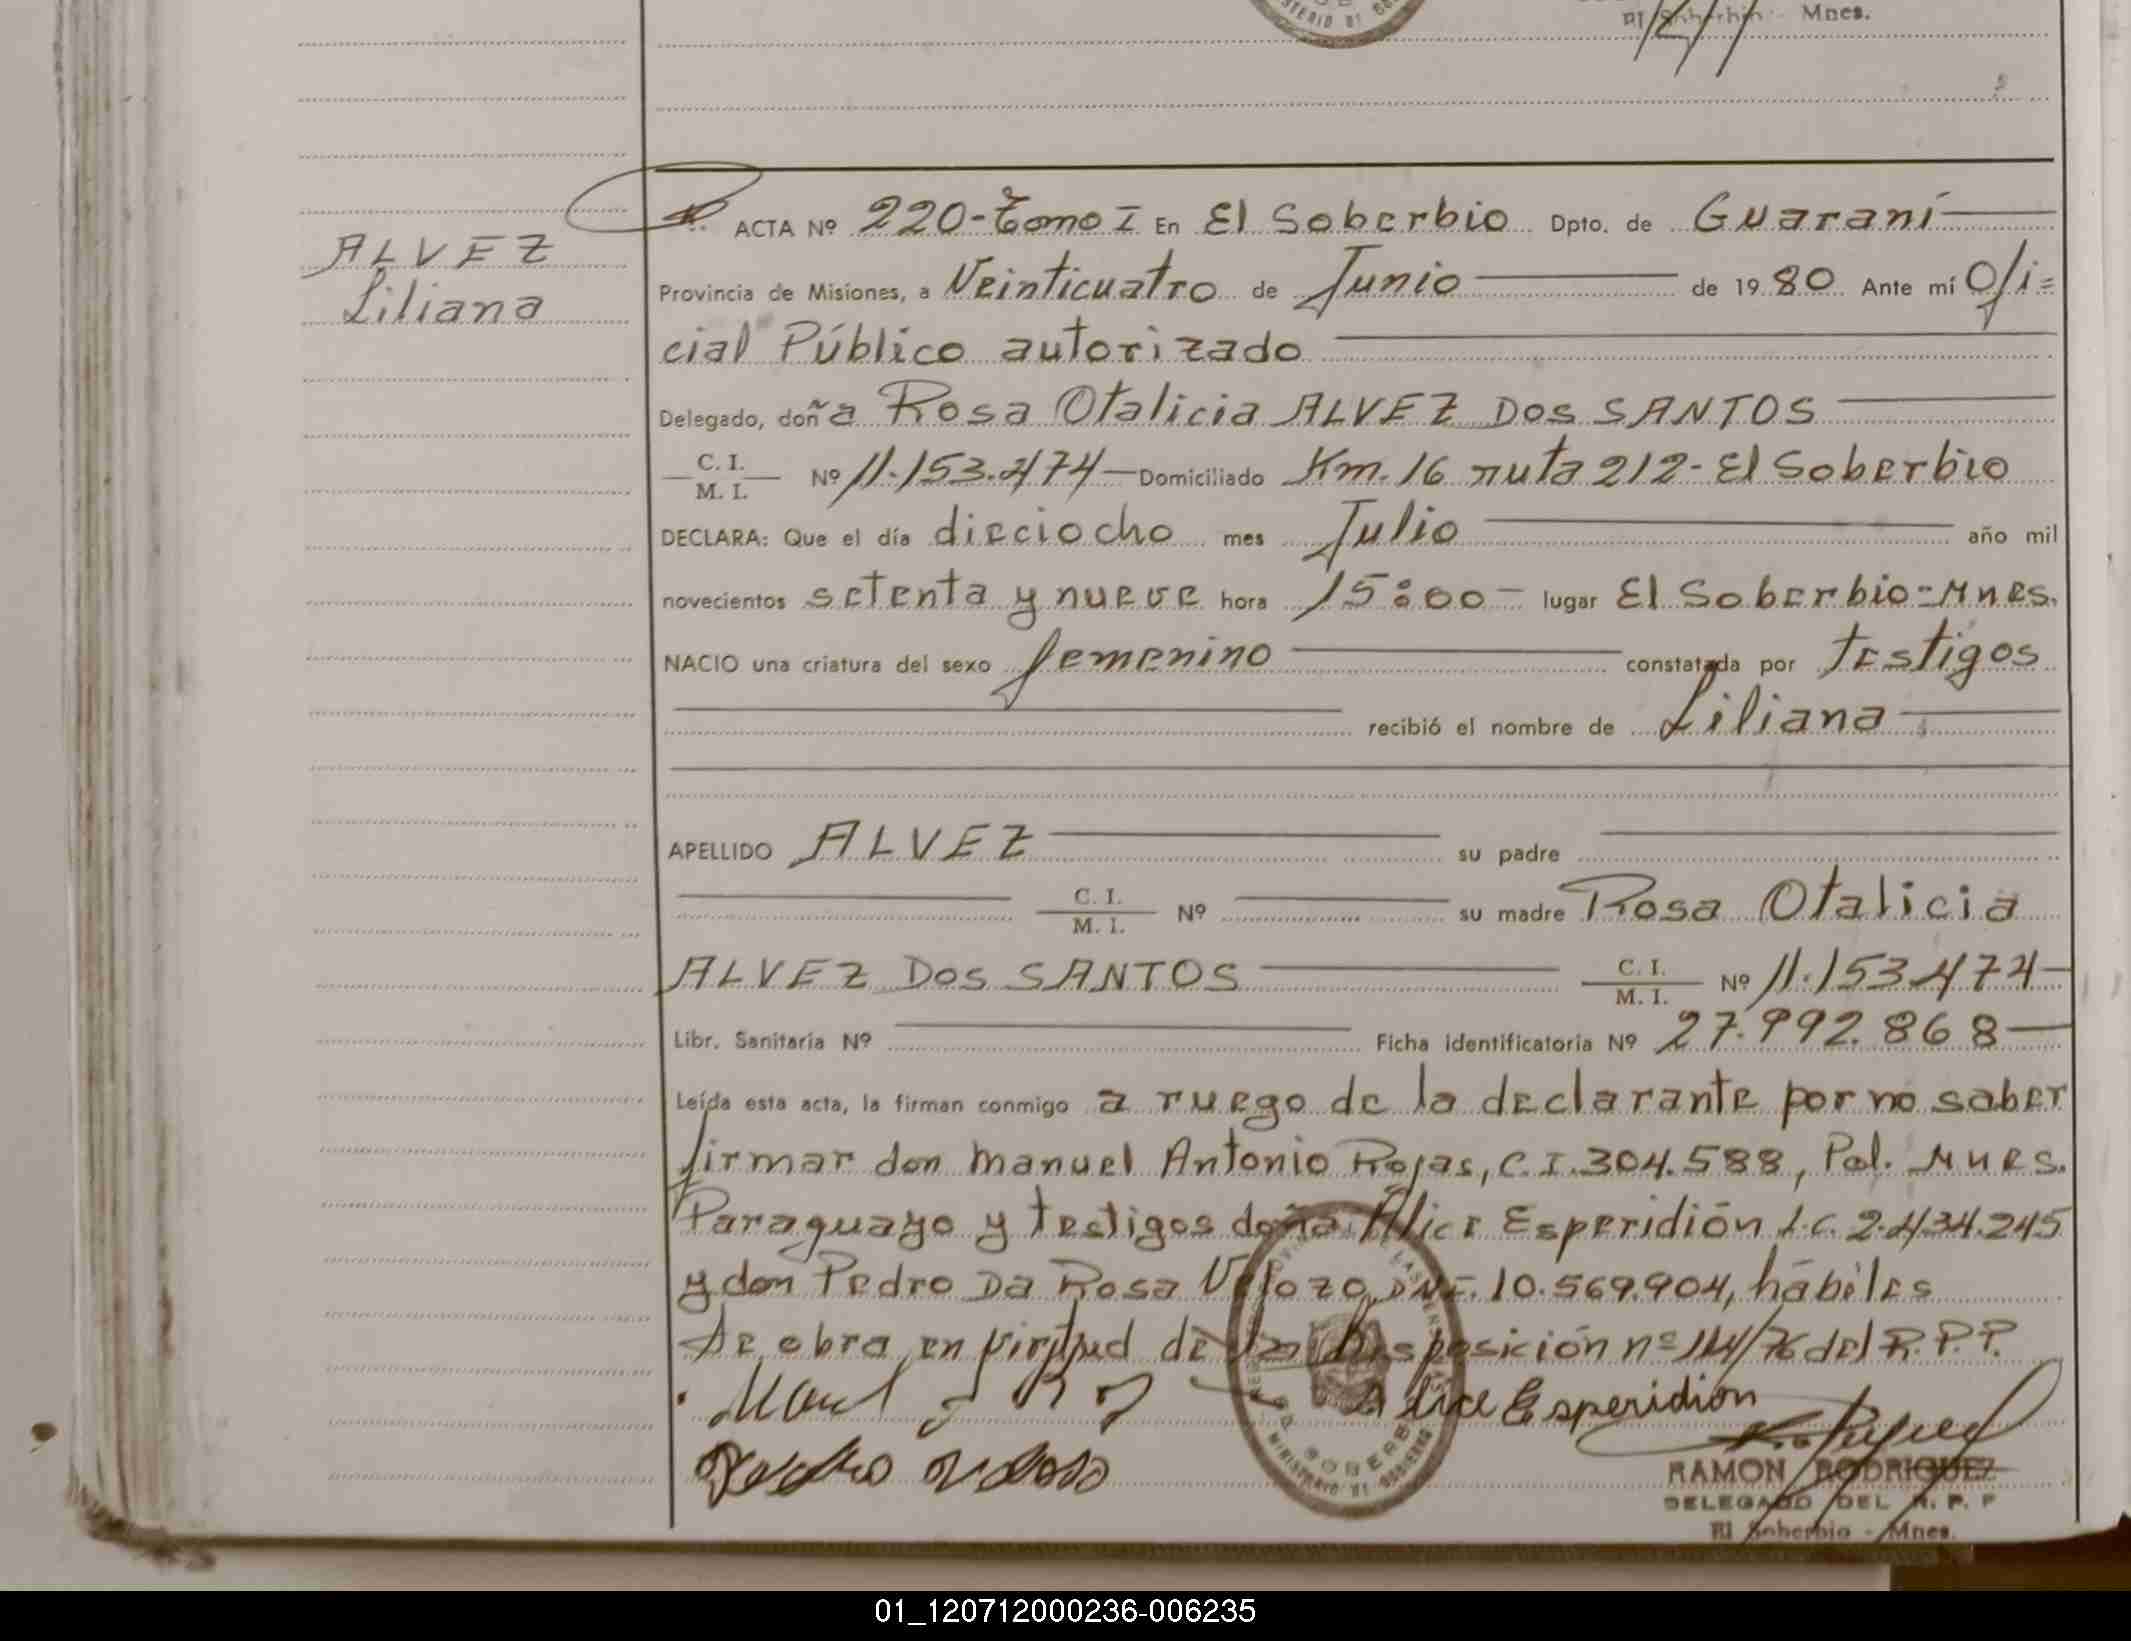 El Soberbio - Mnes.
ALVEZ
Liliana
ACTA Nº 220-Tomo I En El Soberbio Dpto. de Guaraní
Provincia de Misiones, a Veinticuatro de Junio de 1980 Ante mí Ofi=
cial Público autorizado
Delegado, doña Rosa Otalicia ALVEZ DOS SANTOS
C. I.
M. I. Nº 11.153.474 Domiciliado Km. 16 ruta 212- El Soberbio
DECLARA: Que el día dieciocho mes Julio año mil
novecientos setenta y nueve hora 15:00 lugar El Soberbio=Mnes.
NACIO una criatura del sexo femenino constatada por testigos
recibió el nombre de Liliana
APELLIDO ALVEZ su padre
C. I.
M. I. Nº su madre Rosa Otalicia
ALVEZ DOS SANTOS C. I.
M. I. Nº 11.153.474
Libr. Sanitaria Nº Ficha identificatoria Nº 27.992.868
Leída esta acta, la firman conmigo a ruego de la declarante por no saber
firmar don Manuel Antonio Rojas, C.I.304.588, Pol. Mnes.
Paraguayo y testigos doña Alice Esperidión L.C. 2.434.245
y don Pedro Da Rosa Velozo, DNI. 10.569.904, hábiles
Se obra en virtud de la Disposición nº 144/76 del R.P.P.
Alice Esperidion
RAMON RODRIGUEZ
DELEGADO DEL R. P. P
El Soberbio - Mnes.
01_120712000236-006235